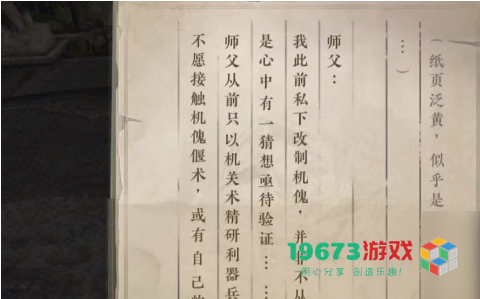 （纸页泛黄，似乎是
…）
师父：
我此前私下改制机傀，并非不从
是心中有一猜想亟待验证……
师父从前只以机关术精研利器兵
不愿接触机傀偃术，或有自己
19673游戏
用心分享 创造乐趣！